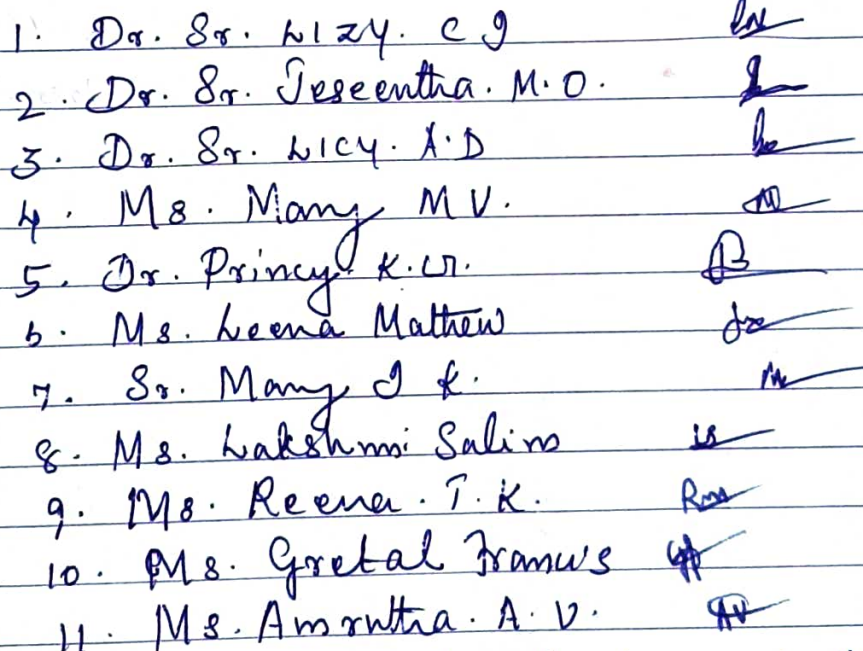 1. Dr. Sr. LIZY. C J
2. Dr. Sr. Jeseentha. M.O.
3. Dr. Sr. LICY. A.D
4. Ms. Mary M V.
5. Dr. Princy K.
6. Ms. Leena Mathew
7. Sr. Mary J K.
8. Ms. Lakshmi Salim
9. Ms. Reena. T. K.
10. Ms. Gretal Francis
11. Ms. Amrutha. A. V.